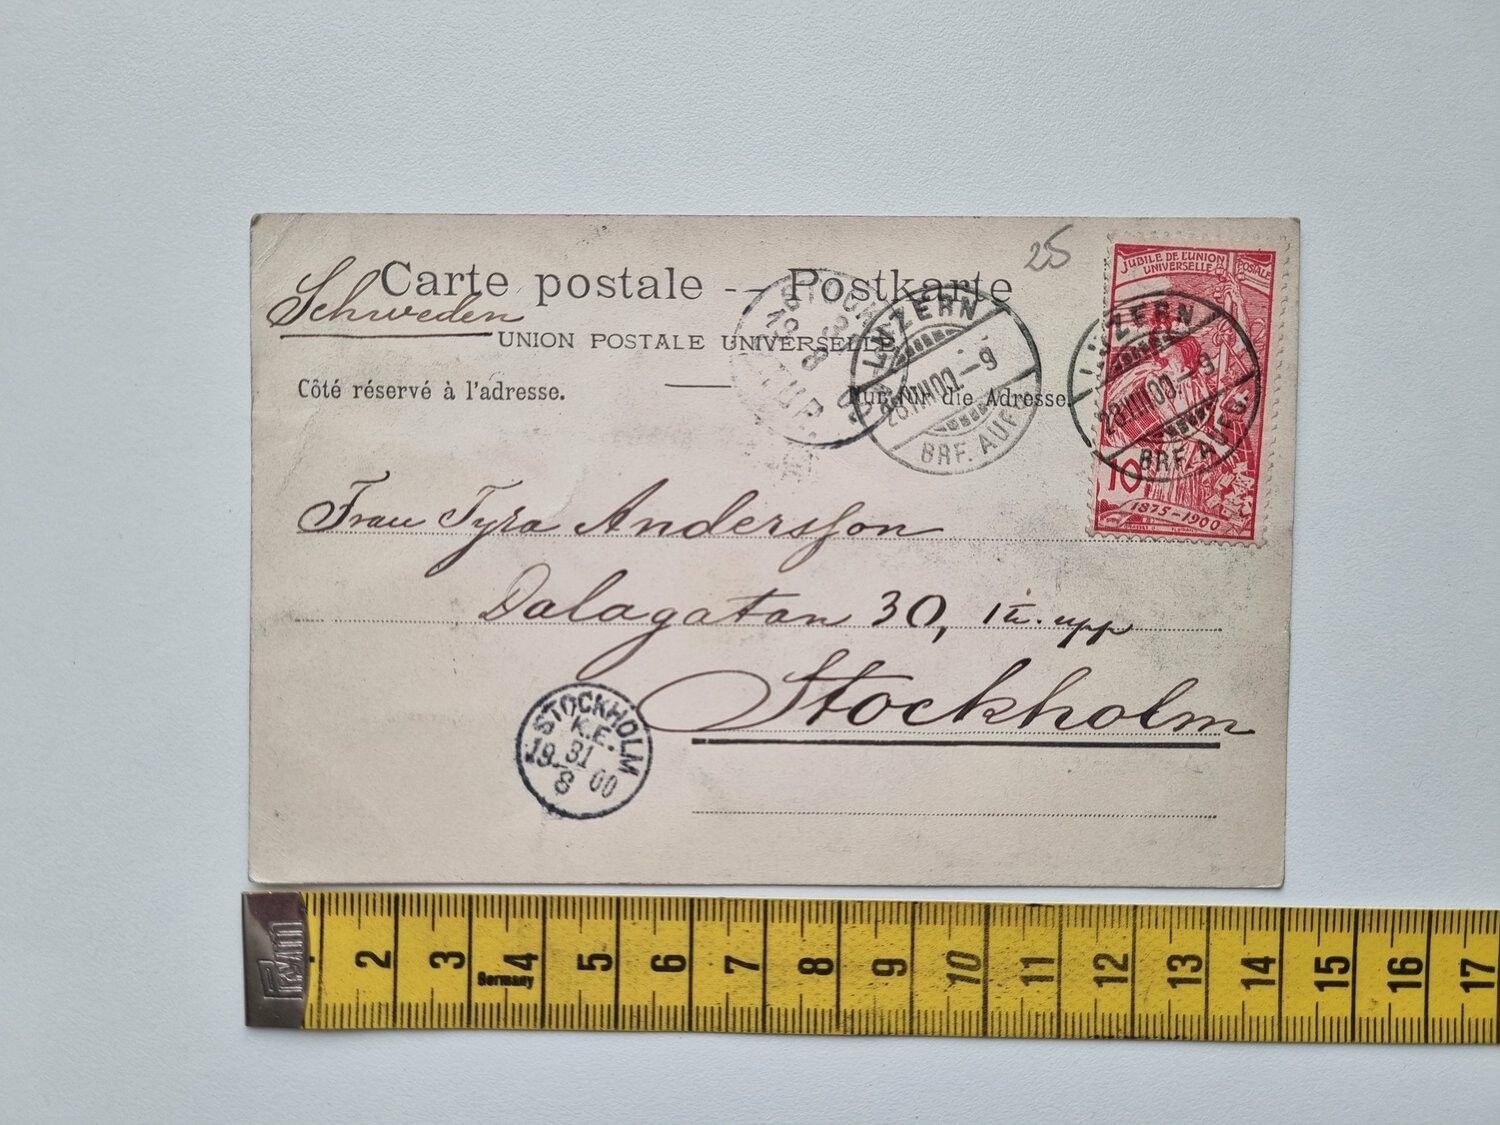 25
Carte postale -- Postkarte
Schweden
UNION POSTALE UNIVERSELLE
Côté réservé à l'adresse.
Nur für die Adresse.
JUBILÉ DE L'UNION
UNIVERSELLE POSTALE
10
1875-1900
LUZERN
28.VIII.00.-9
BRF. AUFG.
LUZERN
28.VIII.00.-9
BRF. AUFG.
Frau Tyra Andersson
Dalagatan 30, 1 tr. upp
Stockholm
STOCKHOLM
K.E.
31
19 00
8
2 3 4 5 6 7 8 9 10 11 12 13 14 15 16 17
Germany